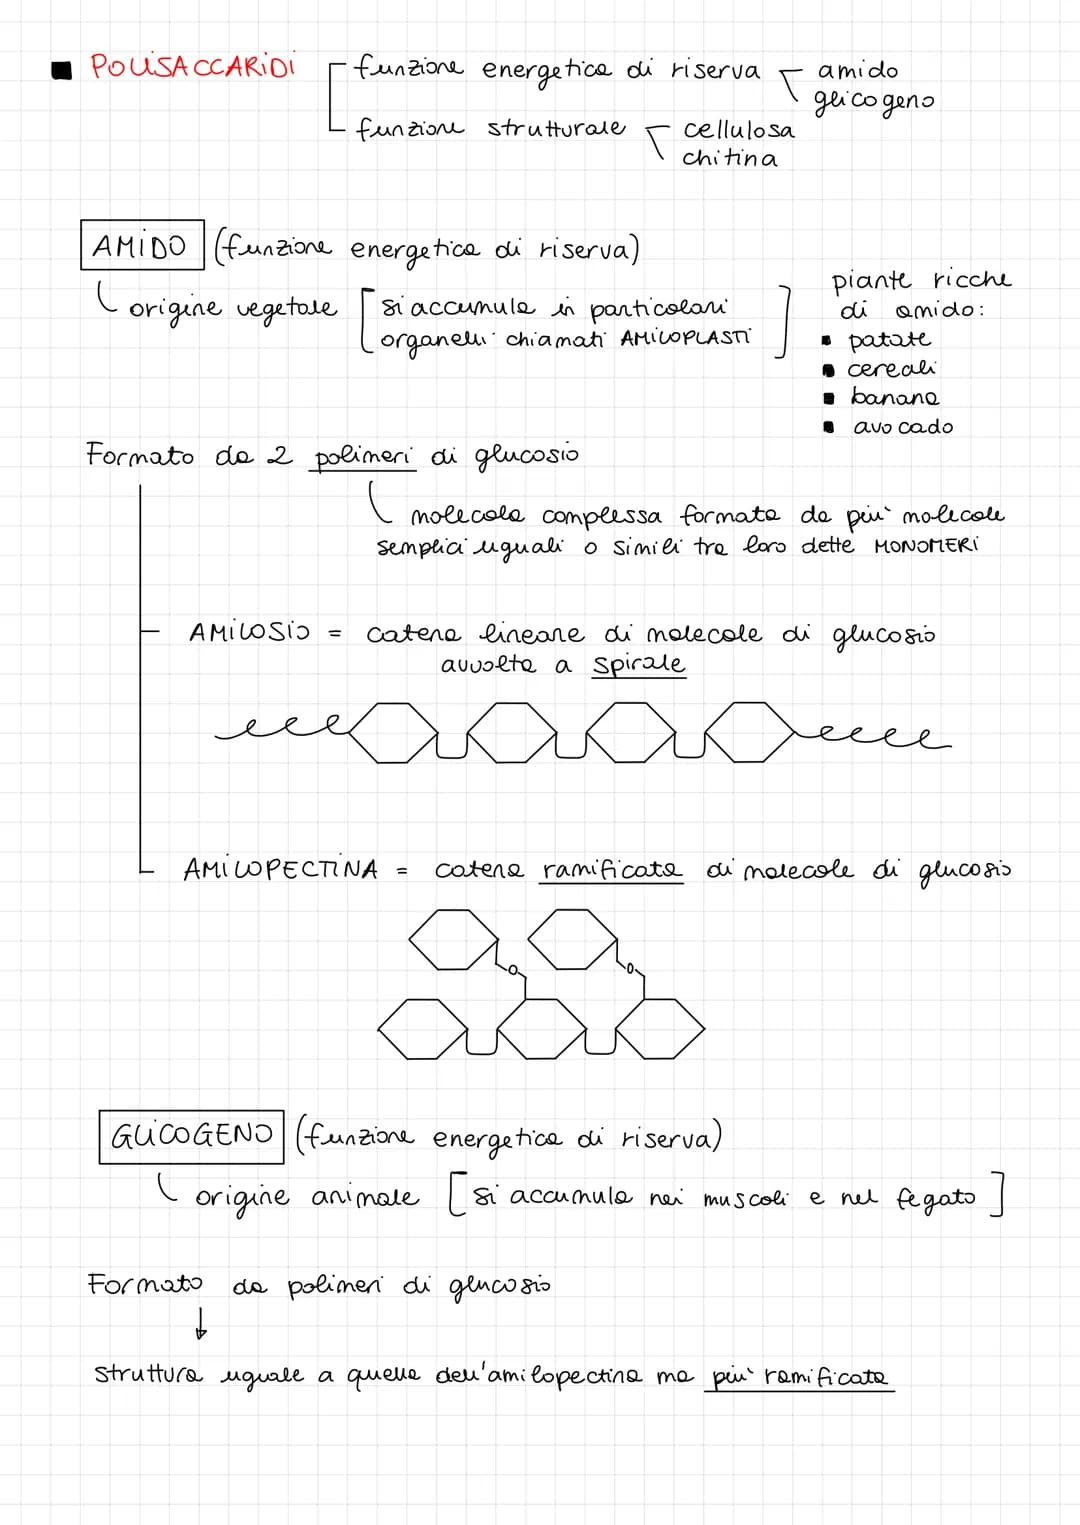 POLISACCARIDI
funzione energetica di riserva
amido
glicogeno
funzione strutturale
cellulosa
chitina
AMIDO (funzione energetica di riserva)
origine vegetale
si accumula in particolari
organelli chiamati AMILOPLASTI
piante ricche
di amido:
patate
cereali
banana
avocado
Formato da 2 polimeri di glucosio
molecola complessa formata da più molecole
semplici uguali o simili tra loro dette MONOMERI
AMILOSIO = catena lineare di molecole di glucosio
avvolta a spirale
AMILOPECTINA = catena ramificata di molecole di glucosio
O
O
GLICOGENO (funzione energetica di riserva)
origine animale [si accumula nei muscoli e nel fegato]
Formato da polimeri di glucosio
struttura uguale a quella dell'amilopectina ma più ramificata